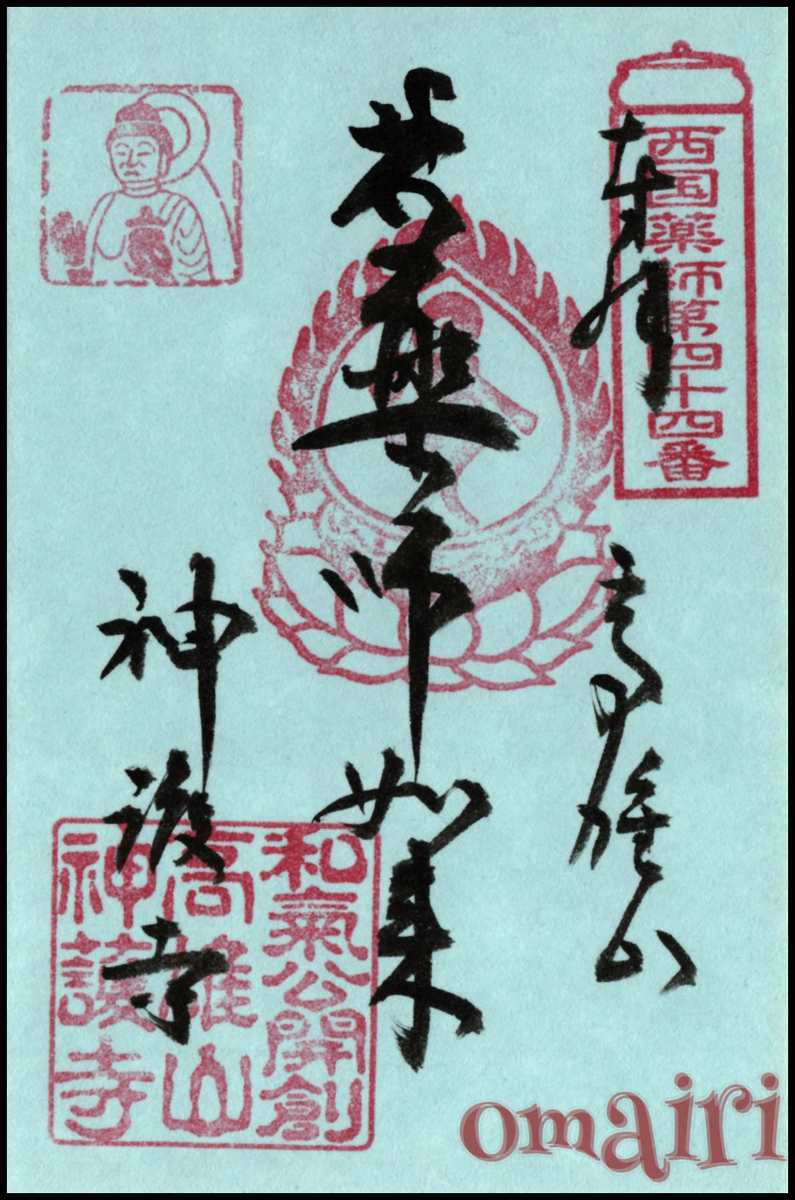 奉拝
西国薬師第四十四番
高雄山
薬師如来
神護寺
和氣公開創
高雄山
神護寺
omairi